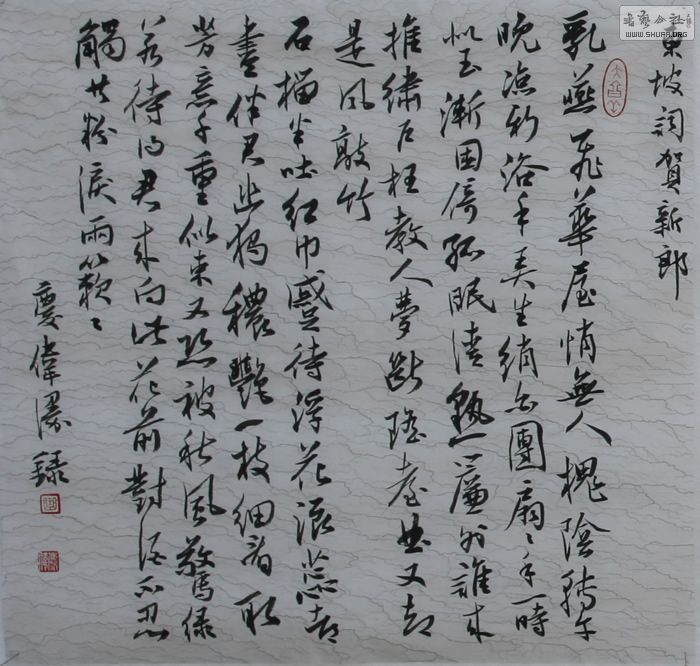 東坡詞賀新郎
乳燕飛華屋悄無人槐陰轉午
晚涼新浴手弄生綃白團扇〻手一時
似玉漸困倚孤眠清熟簾外誰來
推繡戶枉教人夢斷瑤臺曲又却
是風敲竹
石榴半吐紅巾蹙待浮花浪蕊都
盡伴君幽獨穠艷一枝細看取
芳意千重似束又恐被秋風驚綠
若待得君來向此花前對酒不忍
觸共粉淚兩簌〻
慶偉錄
書藝公社
WWW.SHUFA.ORG